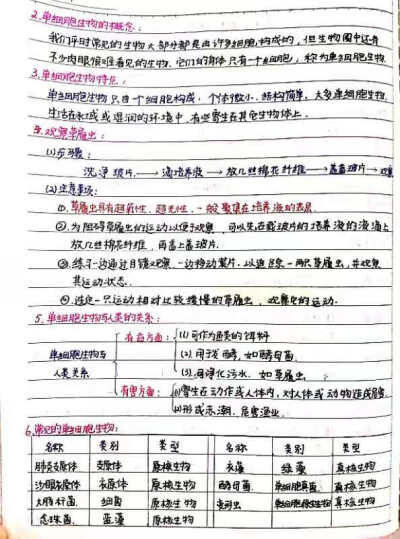 2.单细胞生物的概念:
我们平时常见的生物大部分都是由许多细胞构成的,但生物圈中还有
不少肉眼很难看见的生物.它们的身体只有一个细胞,称为单细胞生物.
3.单细胞生物特点:
单细胞生物只由一个细胞构成,个体微小.结构简单,大多单细胞生物
生活在水域或湿润的环境中,有些寄生在其他生物体上.
4.观察草履虫:
(1)步骤:
洗净玻片.→滴培养液→放几丝棉花纤维→盖盖玻片→观察
(2)注意事项:
①.草履虫具有趋氧性.趋光性.一般聚集在培养液的表层.
②.为阻碍草履虫的运动以便于观察,可以先在载玻片的培养液的液滴上
放几丝棉花纤维,再盖上盖玻片.
③.练习一边通过目镜观察.一边移动装片.以追踪一两只草履虫,并观察
其运动状态.
④.选定一只运动相对比较缓慢的草履虫.观察它的运动.
5.单细胞生物与人类的关系:
单细胞生物与
人类关系
有益方面:
(1)可作为鱼类的饵料
(2).用于发酵,如酵母菌.
(3).用净化污水.如草履虫
有害方面:
(1)寄生在动作或人体内,对人体或动物造成危害.
(2)形成赤潮.危害渔业.
6.常见的单细胞生物:
名称 类别 类型 名称 类别 类型
肺炎支原体 支原体 原核生物 衣藻 绿藻 真核生物
沙眼衣原体 衣原体 原核生物 酵母菌 单细胞真菌 真核生物
大肠杆菌 细菌 原核生物 变形虫 单细胞原生生物 真核生物
念珠菌 蓝藻 原核生物